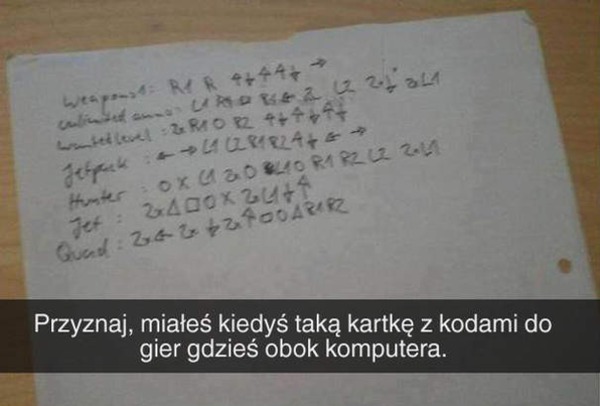 Weapons1: R1 R ↑↓↑↑↓ →
Unlimited ammo: L1 R1 □ R1 ← 2 L2
Wanted level: 2xR1 O R2 ↑↓↑↓↑↓
Jetpack: ← → L1 L2 R1 R2 ↑↓ ← →
Hunter: O X L1 2xO L1 O R1 R2 L2 2xL1
Jet: 2xΔ □ O X 2xL1 ↓ ↑
Quad: 2x← 2x↓ 2x↑ □ O Δ R1 R2
Przyznaj, miałeś kiedyś taką kartkę z kodami do
gier gdzieś obok komputera.